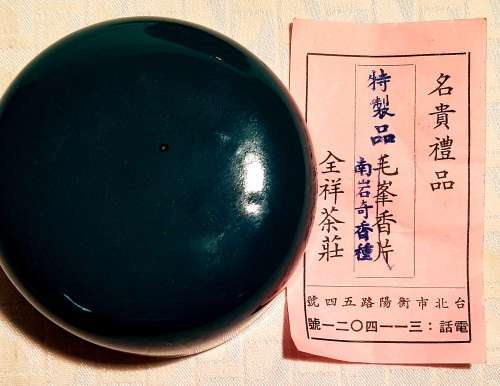 名貴禮品
特製品
毛峯香片
南岩奇香種
全祥茶莊
台北市衡陽路五四號
電話：三一一四〇二一號